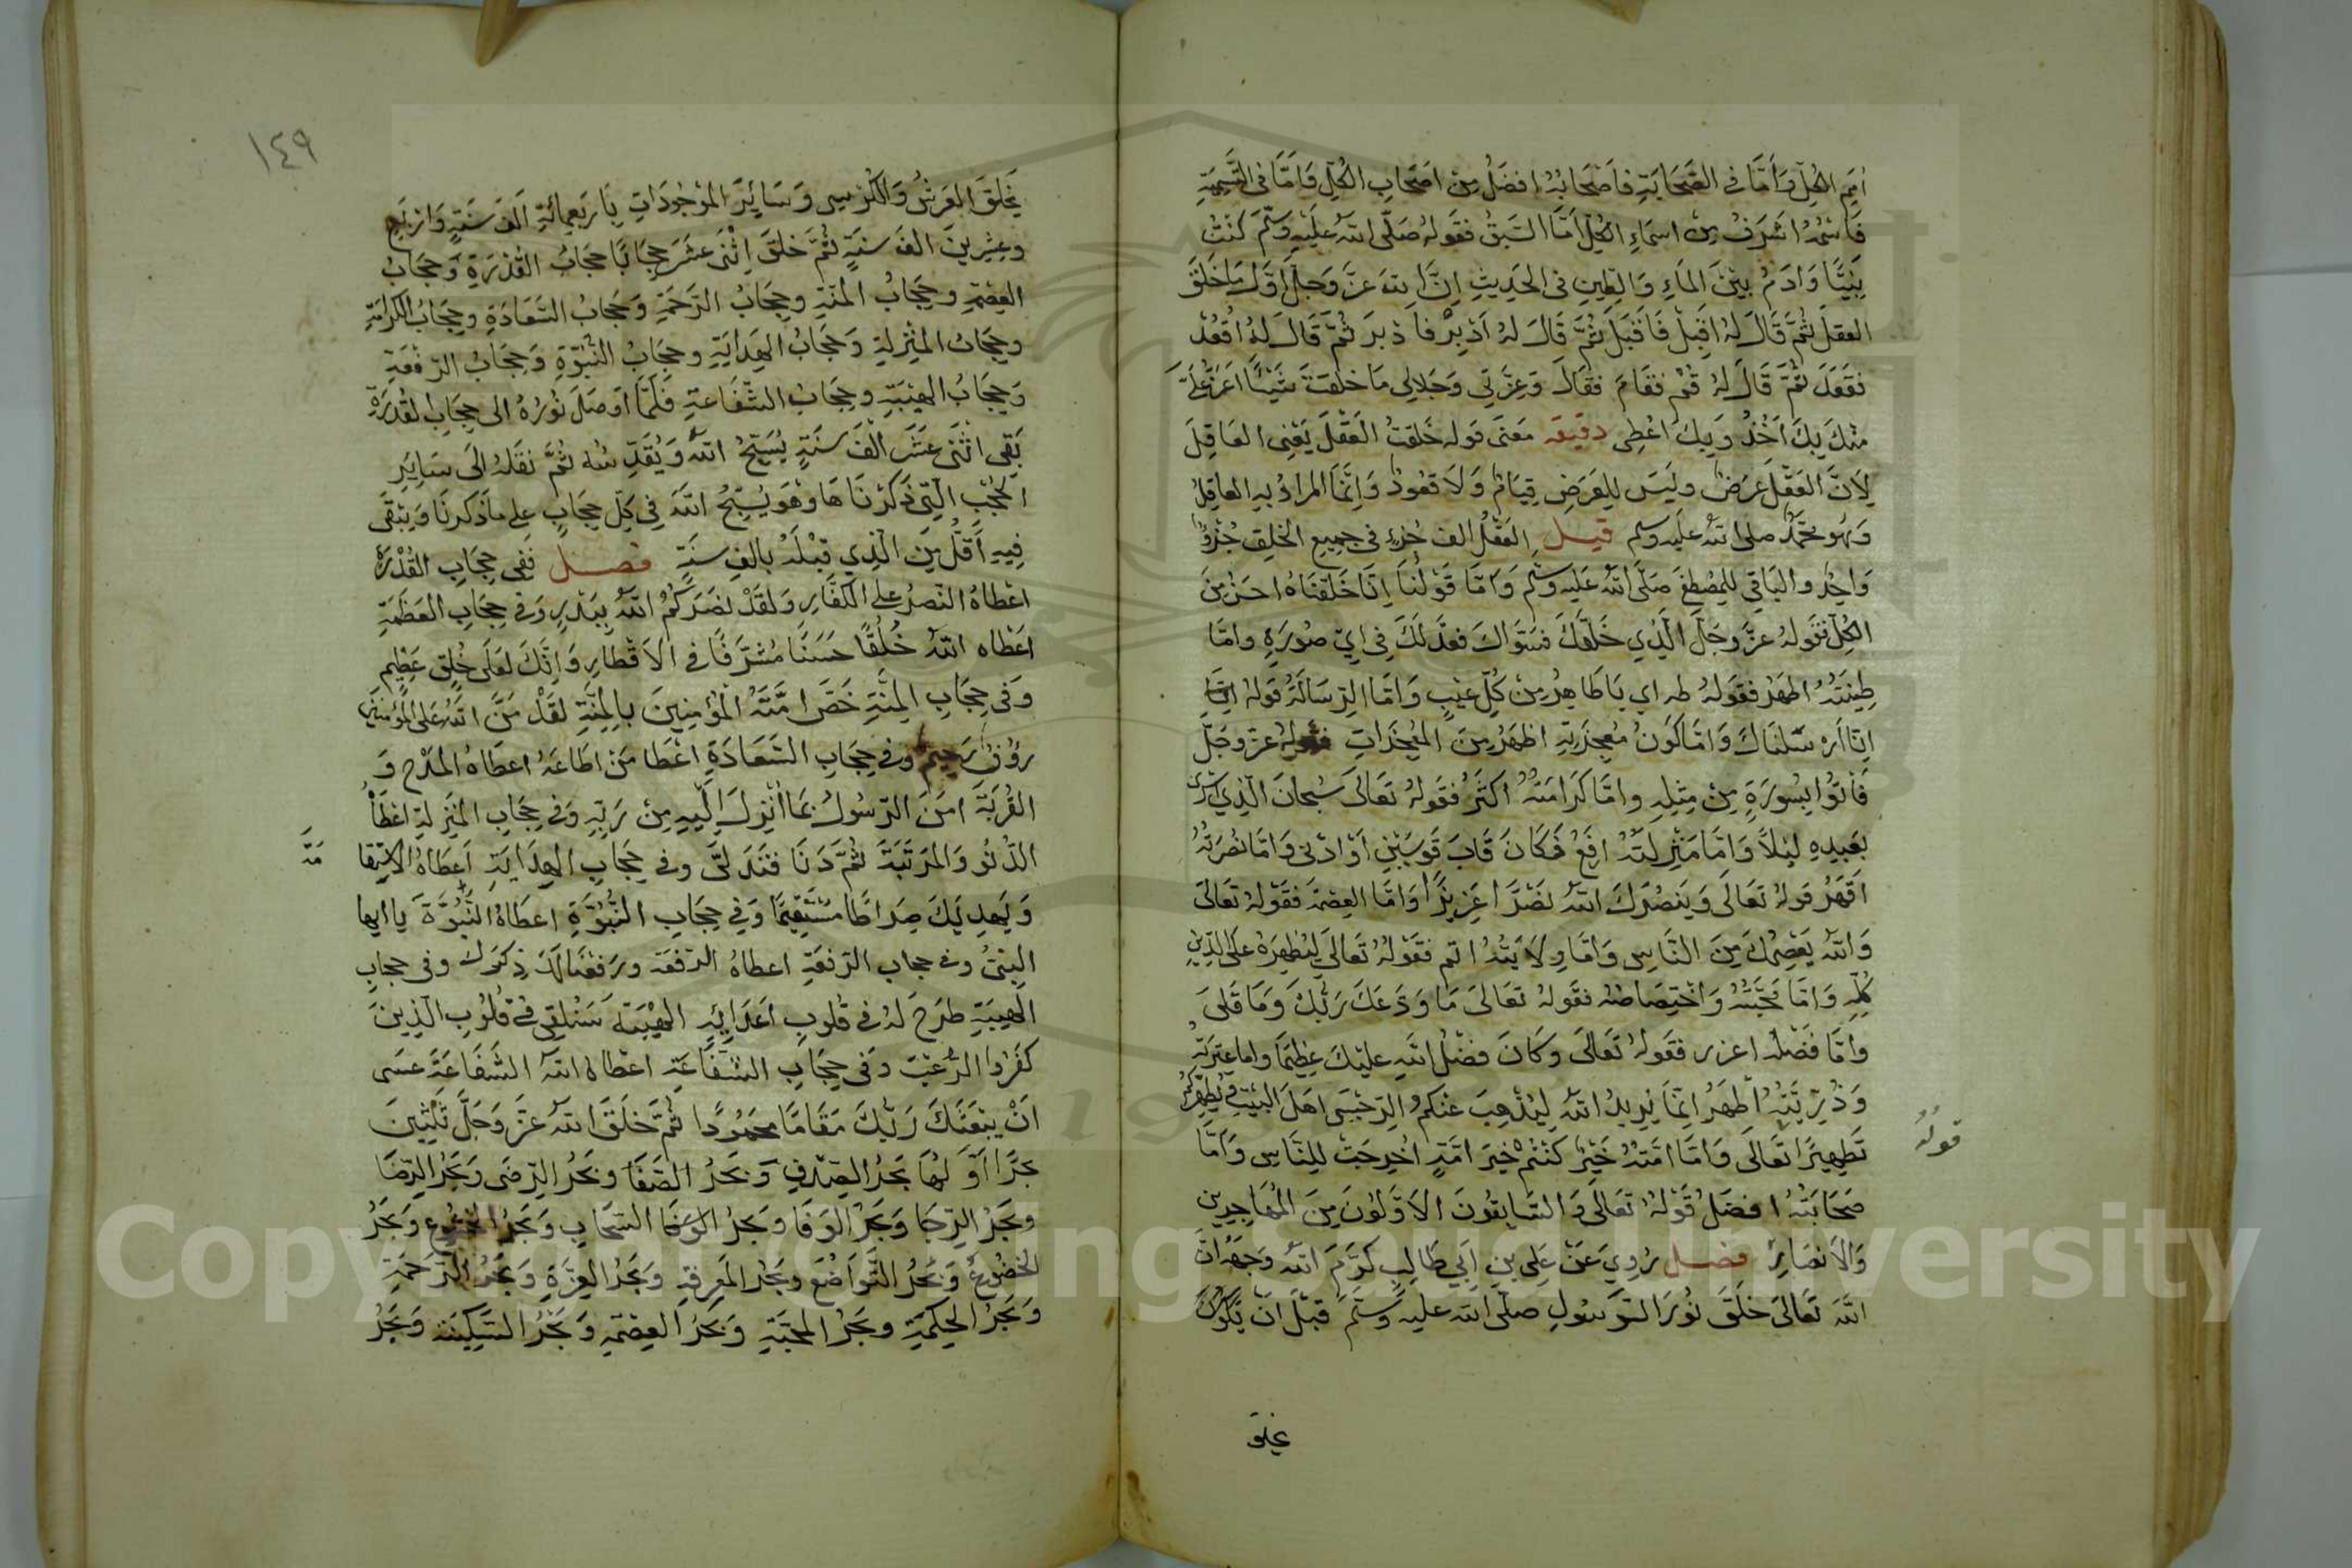 امم الكل وَأمَّا في الصَّحَابَةِ فاصْحَابُهُ افضَلُ مِنْ اصْحَابِ الكُلِّ وَامَّا فى التَّسمِيَةِ
فَاسْمُهُ اشرَفُ مِنْ اسمَاءِ الكُلِّ امَّا السَّبقُ فقَولهُ صَلَّى اللهُ عَلَيْهِ وَسَلَّمَ كُنْتُ
نبيًّا وَادَمُ بَيْنَ المَاءِ وَالطِينِ فى الحَدِيثِ اِنَّ اللهَ عَزَّ وَجلَّ اوَّلَ مَا خَلَقَ
العَقلَ ثُمَّ قَالَ لهُ اقبِلْ فَاقبَلَ ثُمَّ قَالَ لهُ اَدْبِرْ فاَدْبرَ ثُمَّ قَالَ لهُ اُقعُدْ
فقَعَدَ ثُمَّ قَالَ لهُ قُمْ فقَامَ فقَالَ وَعِزَّتِي وَجَلالِى مَا خَلقتُ شَيْئًا اعَزَّ عَلَيَّ
مِنْكَ بِكَ اَخُذُ وَبِكَ اعْطِى دقيقه معَنَى قوله خَلقتُ العَقْلَ يَعْنِى العَاقِلَ
لِاَنَّ العَقْلَ عَرَضٌ وليَسَ لِلعَرَضِ قِيَامٌ وَلَا قعُودٌ وَاِنَّمَا المرَادُ بهِ العاقِلُ
وَهُو مُحَمَّدٌ صلى الله عليه وسلم قيل العَقْلُ الف جُزءٍ فى جميعِ الخَلقِ جُزْؤٌ
وَاحِدٌ والبَاقِي لِلمُصْطفَى صَلَّى اللهُ عَلَيه وسَلَّم وَامَّا قَوْلُنَا اِنَّا خَلَقنَاهُ احسَنُ مِنَ
الكُلِّ فقَولهُ عَزَّ وجَلَّ الَّذِي خَلَقَكَ فسَوَّاكَ فعَدَلَكَ فِى اىِّ صُورَةٍ وامَّا
طِينَتُهُ اطهَرُ فقَولهُ طه اي يَا طَاهِرُ مِنْ كُلِّ عَيْبٍ وَامَّا الرِّسَالَةُ قولهُ
اِنَّا ارْسَلنَاكَ وَامَّا كَوْنُ مُعجِزَتِهِ اظهَرُ مِنَ المُعجِزَاتِ فقوله عزَّ وجَلَّ
فَأتُوا بسُورَةٍ مِنْ مِثلِهِ وامَّا كَرَامَتهُ اكثَرُ فقَولهُ تعَالَى سُبحانَ الَّذِي اسْرَى
بعَبدِهِ لَيْلاً وَامَّا مَنْزلَتهُ ارفَعُ فَكَانَ قَابَ قَوسَيْنِ اَوْ ادْنى وَامَّا نصْرَتُهُ
اقهَرُ قولهُ تعَالَى وَيَنصُرَكَ اللهُ نصْرًا عَزِيزًا وَامَّا العِصْمَة فقَوْلهُ تعَالَى
وَاللهُ يَعْصِمُكَ مِنَ النَّاسِ وَامَّا وِلَايَتُهُ اتم فقَوْلهُ تعَالَى لِيُظهِرَهُ عَلَى الدِّينِ
كُلِّهِ وَامَّا مَحَبَّتُهُ وَاخْتِصَاصُهُ فقَولهُ تعَالىَ مَا وَدَّعَكَ رَبُّكَ وَمَا قَلَى
وامَّا فَضْلهُ اعزر فقَولهُ تعَالَى وَكَانَ فضْلُ اللهِ عَليْكَ عظِيمًا واما عِترَتهُ
وَذُرِّيَّتهُ اطهَرُ اِنَّمَا يُرِيدُ اللهُ لِيُذْهِبَ عَنْكمُ الرِّجْسَ اهلَ البَيْتِ وَيُطَهِّرَكُمْ
تَطهِيرًا تعَالَى وَامَّا امَّتهُ خَيْر كُنتُمْ خَيْرَ امَّةٍ اُخْرِجَتْ لِلنَّاسِ وَامَّا
قولهُ
صَحَابَتُهُ افضَلُ قَوْلهُ تعَالَى وَالسَّابِقُونَ الاَوَّلوُنَ مِنَ المُهَاجِرِينِ
وَالاَنصَارِ فصل رُوِيَ عَنْ عَلِى بنِ اَبِي طَالِبٍ كرَّمَ اللهُ وَجهَهُ انَّ
اللهَ تعَالىَ خَلَقَ نُورَ الرَّسُولِ صلَّى الله عليهِ وسَلَّمَ قَبْلَ اَنْ يَكُونَ
يخلق
١٤٩
يَخلقَ العَرشُ وَالكُرسِى وَسَايِرَ المَوْجُودَاتِ بِاَربَعِمائَةِ اَلفَ سَنَةٍ وَاَربَعِ
وعِشْرِينَ الفَ سنَةٍ ثُمَّ خلَقَ اِثْنَى عَشَرَ حِجَابًا حجَابُ القُدْرَةِ وَحجَابُ
العِصْمَةِ وحِجَابُ المنَّةِ وحِجَابُ الرَّحَمةِ وَحجَابُ السَّعَادَةِ وحِجَابُ الكرَامَةِ
وحِجَابُ المنْزِلةِ وَحجَابُ الهِدَايَةِ وحِجَابُ النُّبُوَّةِ وَحِجَابُ الرّفعَةِ
وَحِجَابُ الهَيْبَةِ وحِجَابُ الشَّفَاعَةِ فَلَمَّا اوصَلَ نوُرَهُ الى حِجَابِ القُدْرَةِ
بَقى اثْنَى عشَرَ الْفَ سَنَةٍ يُسَبِّحُ اللهَ وَيُقَدِّسُه ثُمَّ نقَلهُ اِلَى سَايِرِ
الحُجُبِ الَّتِى ذَكَرْنَاهَا وهُوَ يُسَبِّحُ اللَّهَ فِى كلِّ حِجَابٍ على ما ذكرنَا وَيَبْقَى
فيهِ اقَلُّ مِنَ الَّذِي قبْلَهُ بالفِ سنَةٍ فصل فَفِى حِجَابِ القُدْرَةِ
اعْطَاهُ النّصرُ على الكفَّارِ وَلقَدْ نصَرَكُمُ اللهُ بِبَدْرٍ وَفى حِجَابِ العَظَمَةِ
اعْطَاه اللهُ خُلُقًا حسَنًا مُشرِفًا في الاَقْطارِ وَاِنَّكَ لعَلَى خُلقٍ عَظِيم
وَفى حِجَابِ المِنَّةِ خَصَّ امَّتَهُ المُؤمِنِينَ بالمِنَّةِ لقَدْ مَنَّ اللهُ عَلَى المُؤمِنِينَ
رؤُفٌ رَحيمٌ وفى حِجَابِ السَّعَادَةِ اعْطَا مَنْ اطَاعَهُ اعطَاهُ المَدْح وَ
القُربَةَ امَنَ الرَّسُولُ بمَا اُنْزِلَ اِلَيْهِ مِنْ رَبِّهِ وَفى حِجَابِ المنزِلَةِ اعْطَاهُ
الدُّنُو وَالمَرتَبَةَ ثُمَّ دَنَا فتَدَلَّى وفى حِجَابِ الهِدَايَةِ اَعطَاهُ الاستِقا
مَة
وَيَهدِيَكَ صِرَاطًا مُسْتَقِيمًا وَفِي حِجَابِ النُّبُوَّةِ اعطَاهُ النُّبُوَّةَ يا ايها
النبىُّ وفى حجابِ الرَّفعَةِ اعطاهُ الرّفعَة ورَفعنَا لكَ ذِكرَكَ وفى حجَابِ
الهيبَةِ طرَحَ لهُ في قلوبِ اعَدَائِهِ الهيْبَةَ سَنُلقِى فِى قلُوبِ الّذِينَ
كفَرُوا الرُّعْبَ وَفى حِجَابِ الشَّفَاعَةِ اعْطَاهُ اللهُ الشَّفَاعَةَ عسَى
اَنْ يَبْعَثَكَ رَبُّكَ مَقَامًا محمُودًا ثُمَّ خَلَقَ اللهُ عَزَّ وَجَلَّ ثلثِينَ
بحرًا اَوَّلهُا بَحرُ الصِدقِ وَبحَرُ الصَّفَا وبحَرُ الرّضَى وَبَحرُ الرِّضَا
وبحَرُ الرِّجَا وَبَحرُ الوَفَا وبحرُ السّحَابِ وَبَحرُ الخشُوعِ وَبحَرُ
الخضُوعِ وَبَحرُ التَّوَاضُعِ وبحَرُ المَعرِفَةِ وَبَحرُ العِزَّةِ وَبَحرُ الرَّحمَةِ
وَبحَرُ الحِكمَةِ وبَحرُ المحبَّةِ وَبَحرُ العِصْمَةِ وَبَحْرُ السَّكِينَة وَبَحرُ
Copyright © King Saud University
1957